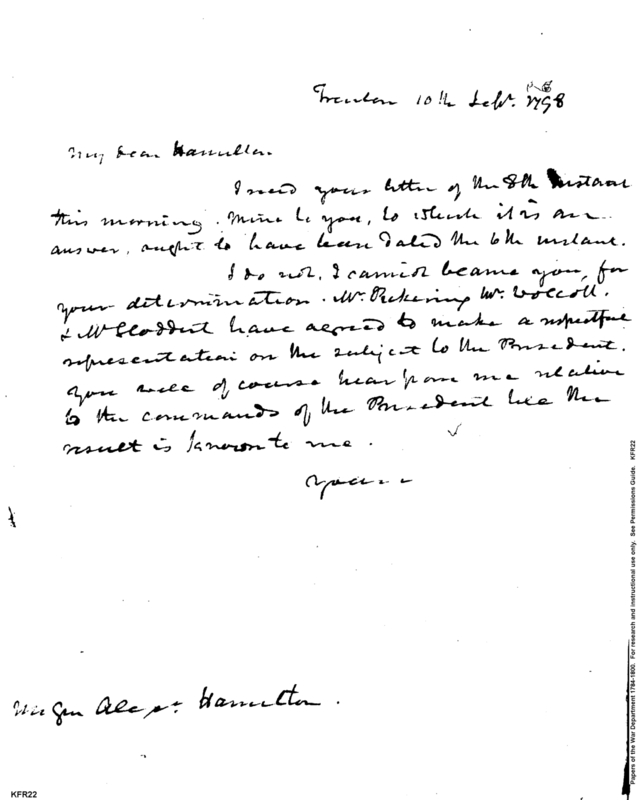 Trenton 10th Sepr. 1798
My dear Hamilton
I recd your letter of the 8th instant
this morning. Mine to you, to which it is an
answer, ought to have been dated the 6th instant.
I do not, I cannot blame you, for
your determination. Mr. Pickering Mr. Wolcott.
& Mr Stoddert have agreed to make a respectful
representation on the subject to the President.
You will of course hear from me relative
to the commands of the President the
result is known to me.
Yours
Alexr. Hamilton.
Papers of the War Department 1784-1800. For research and instructional use only. See Permissions Guide. KFR22
KFR22